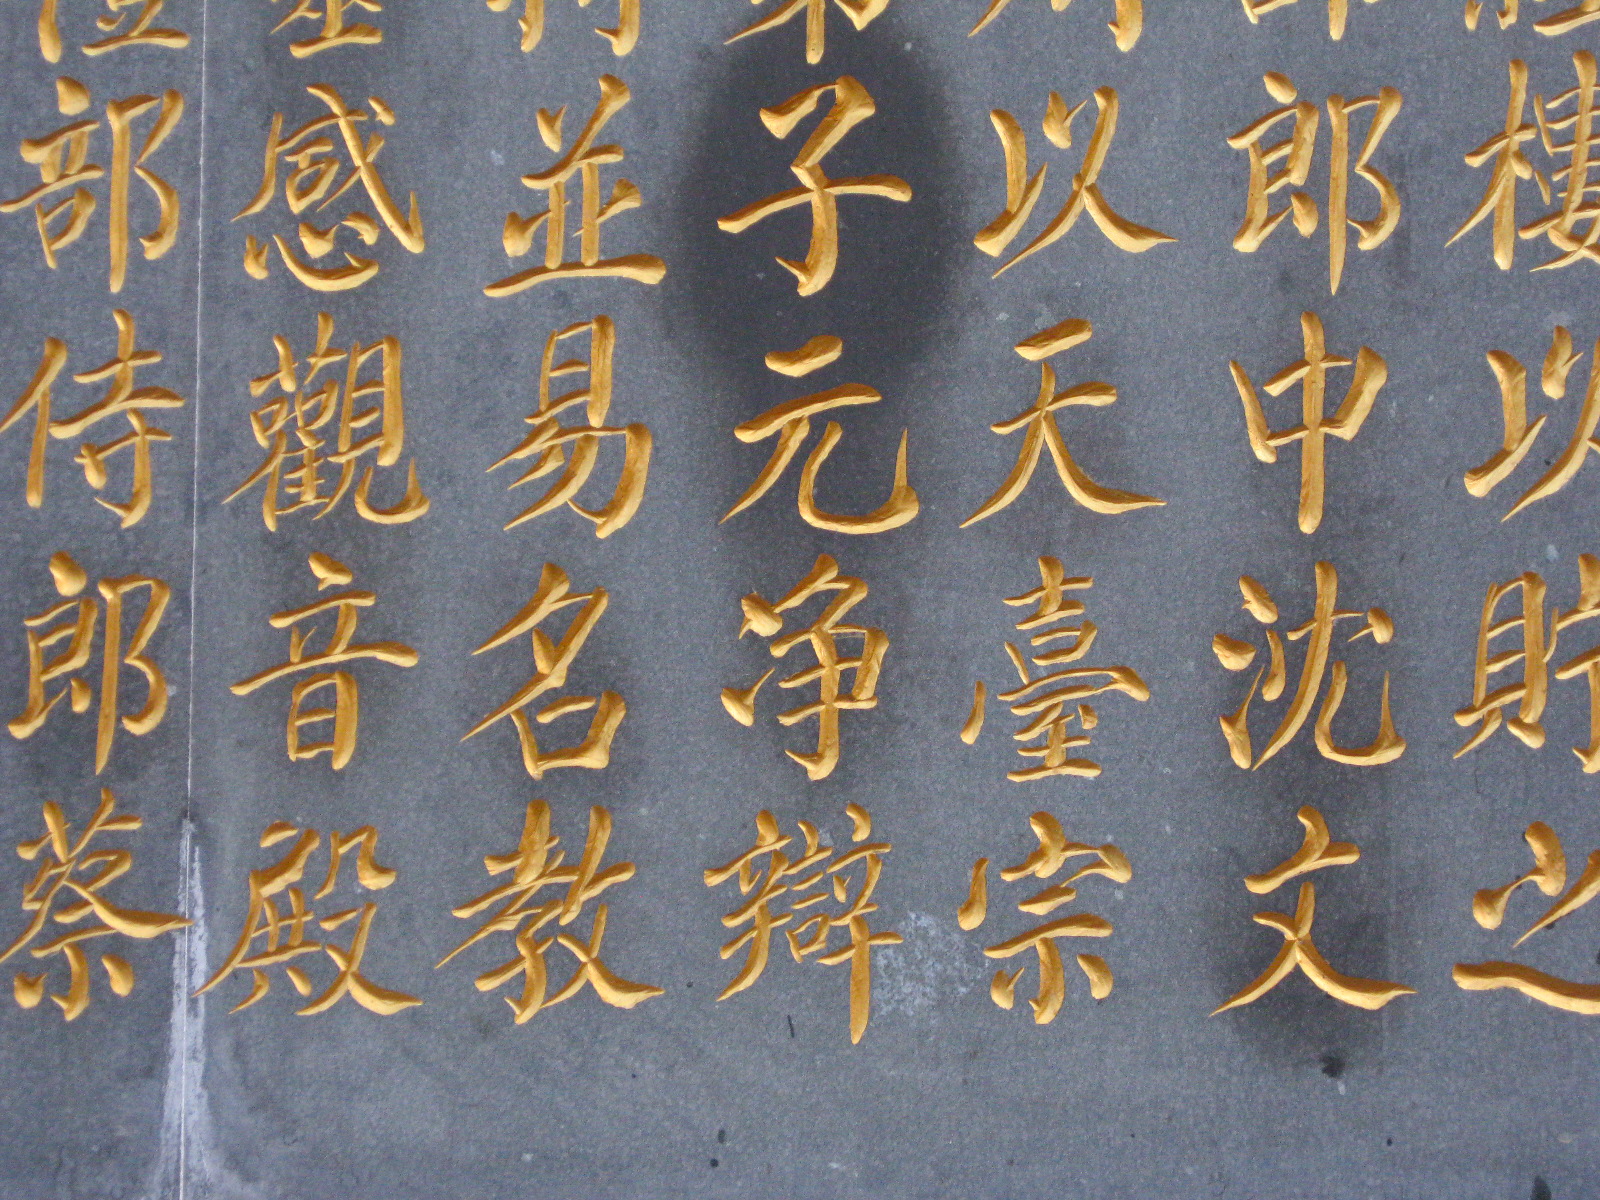 樓以貯之
郎中沈文
以天臺宗
子元净辯
並易名教
感觀音殿
部侍郎蔡